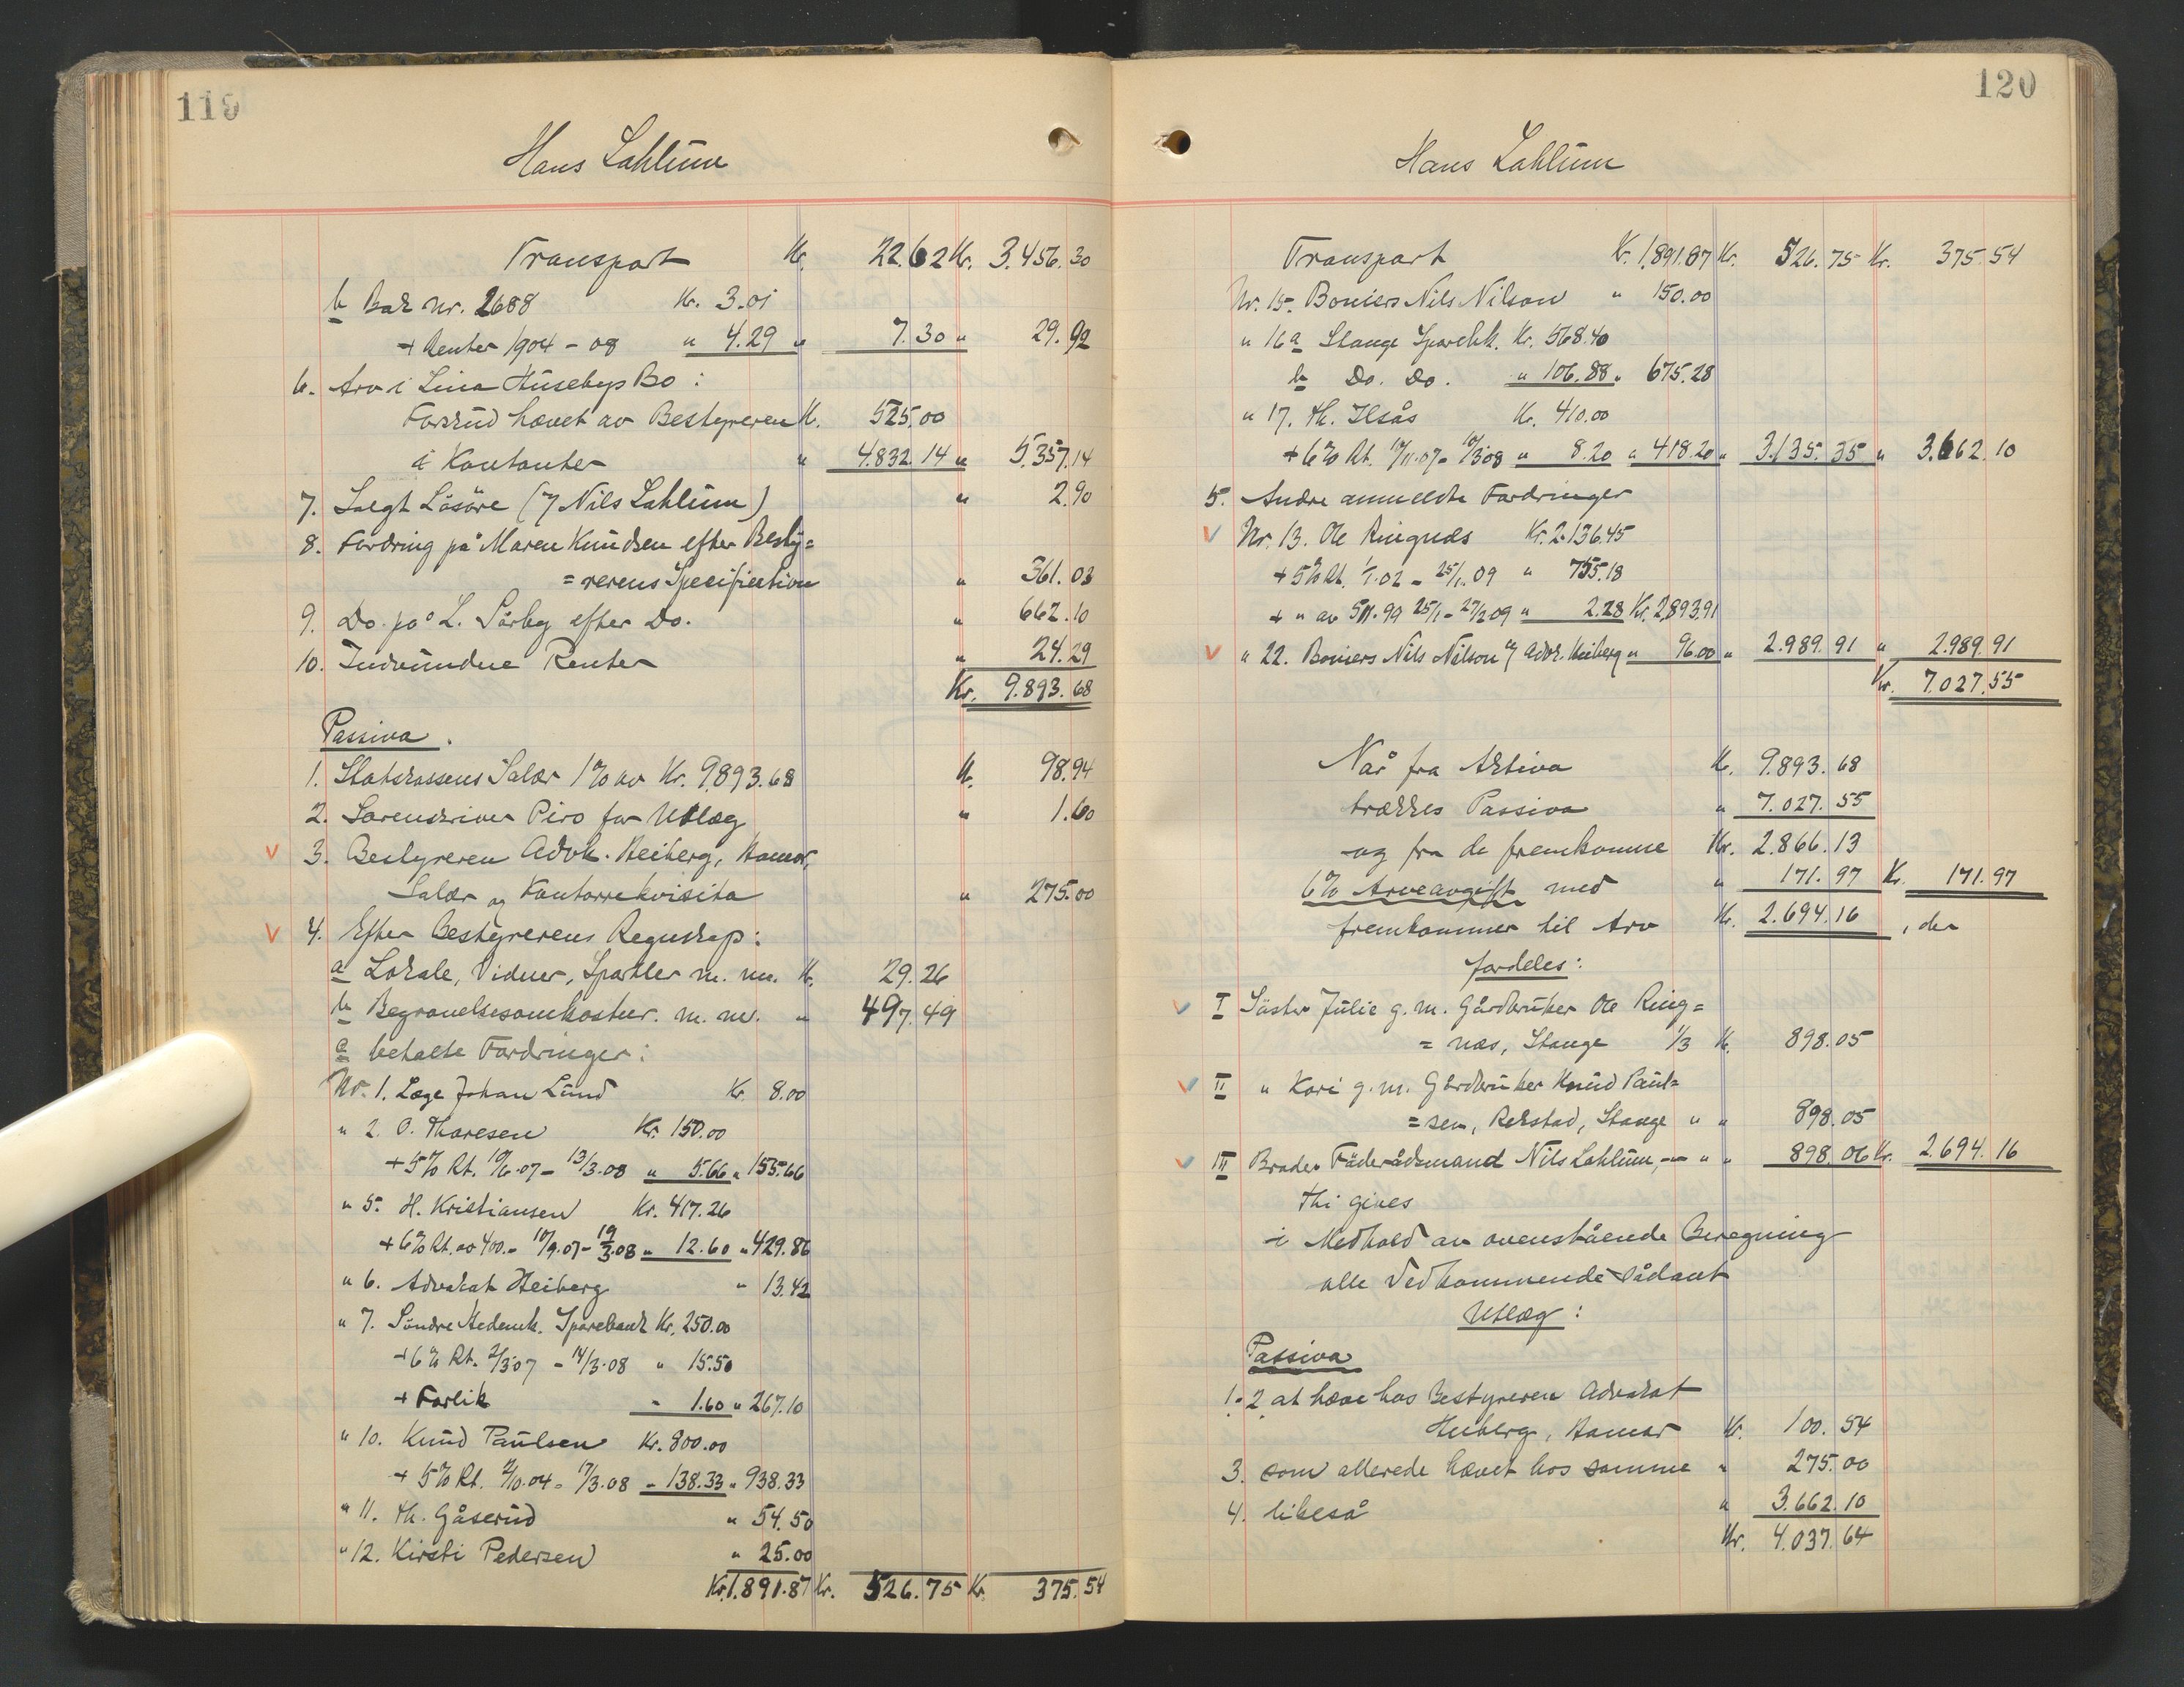 119
Hans Lahlum
Transport Kr. 22.62 Kr. 3.456.30
b Bok nr. 2688 Kr. 3.01
+ Renter 1904 - 08 " 4.29 " 7.30 " 29.92
6. Arv i Lina Husebys Bo:
Forskud hævet av Bestyreren Kr. 525.00
i Kontanter " 4.832.14 " 5.357.14
7. Solgt Lösöre (v/ Nils Lahlum) " 2.90
8. Fordring på Maren Knudsen efter Besty=
=rerens Specifikation " 361.03
9. Do. på L. Sörby efter Do. " 662.10
10. Indvundne Renter " 24.29
Kr. 9.893.68
Passiva.
1. Statskassens Salær 1% av Kr. 9.893.68 Kr. 98.94
2. Sorenskriver Piro for Utlæg " 1.60
V 3. Bestyreren Advok. Heiberg, Hamar,
Salær og Kontorrekvisita " 275.00
V 4. Efter Bestyrerens Regnskap:
a Lokale, Vidner, Sportler m. m. Kr. 29.26
b Begravelsesomkostn. m. m. " 497.49
c betalte Fordringer:
Nr. 1. Læge Johan Lund Kr. 8.00
" 2. O. Thoresen Kr. 150.00
+ 5% Rt. 10/6.07 - 13/3.08 " 5.66 " 155.66
" 5. H. Kristiansen Kr. 417.26
+ 6% Rt. av 400.- 10/9.07 - 19/3.08 " 12.60 " 429.86
" 6. Advokat Heiberg " 13.42
" 7. Söndre Hedemk. Sparebank Kr. 250.00
+ 6% Rt. 2/3.07 - 14/3.08 " 15.50
+ Forlik " 1.60 " 267.10
" 10. Knud Paulsen Kr. 800.00
+ 5% Rt. 2/10.04 - 17/3.08 " 138.33 " 938.33
" 11. Th. Gåserud " 54.50
" 12. Kirsti Pedersen " 25.00
Kr. 1.891.87 Kr. 526.75 Kr. 375.54
120
Hans Lahlum
Transport Kr. 1.891.87 Kr. 526.75 Kr. 375.54
Nr. 15. Boniers Nils Nilson " 150.00
" 16 a Stange Sparebk. Kr. 568.40
b Do. Do. " 106.88 " 675.28
" 17. Th. Ilsås Kr. 410.00
+ 6% Rt. 10/11.07 - 10/3.08 " 8.20 " 418.20 " 3.135.35 " 3.662.10
5. Andre anmeldte Fordringer
V Nr. 13. Ole Ringnæs Kr. 2.136.45
+ 5% Rt. 1/1.02 - 25/1.09 " 755.18
+ " av 511.99 25/1 - 27/2 09 " 2.28 Kr. 2.893.91
V " 22. Boniers Nils Nilson v/ Advk. Heiberg " 96.00 " 2.989.91 " 2.989.91
Kr. 7.027.55
Når fra Aktiva Kr. 9.893.68
trækkes Passiva " 7.027.55
og fra de fremkomne Kr. 2.866.13
6% Arveavgift med " 171.97 Kr. 171.97
fremkommer til Arv Kr. 2.694.16, der
fordeles:
V I Söster Julie g. m. Gårdbruker Ole Ring=
= næs, Stange 1/3 Kr. 898.05
V II " Kari g. m. Gårdbruker Knud Paul=
=sen, Rekstad, Stange " " 898.05
V III Broder Föderådsmand Nils Lahlum, - " " 898.06 Kr. 2.694.16
Thi gives
i Medhold av ovenstående Beregning
alle Vedkommende sådant
Utlæg:
Passiva
1-2 at hæve hos Bestyreren Advokat
Heiberg, Hamar Kr. 100.54
3. som allerede hævet hos samme " 275.00
4. likeså " 3.662.10
Kr. 4.037.64